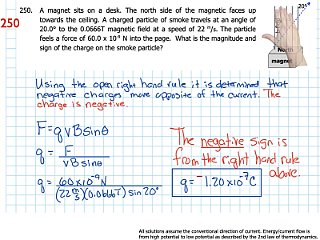 250
250. A magnet sits on a desk. The north side of the magnet faces up
towards the ceiling. A charged particle of smoke travels at an angle of
20.0° to the 0.0666T magnetic field at a speed of 22 m/s. The particle
feels a force of 60.0 x 10⁻⁹ N into the page. What is the magnitude and
sign of the charge on the smoke particle?
20°
North
magnet
Using the open right hand rule it is determined that
negative charges move opposite of the current. The
charge is negative.
F=qvBsinθ
q = F / vBsinθ
q = 60x10⁻⁹N / (22 m/s)(0.0666T) sin 20°
The negative sign is
from the right hand rule
above.
q = -1.20x10⁻⁷C
All solutions assume the conventional direction of current. Energy/current flow is
from high potential to low potential as described by the 2nd law of thermodynamics.